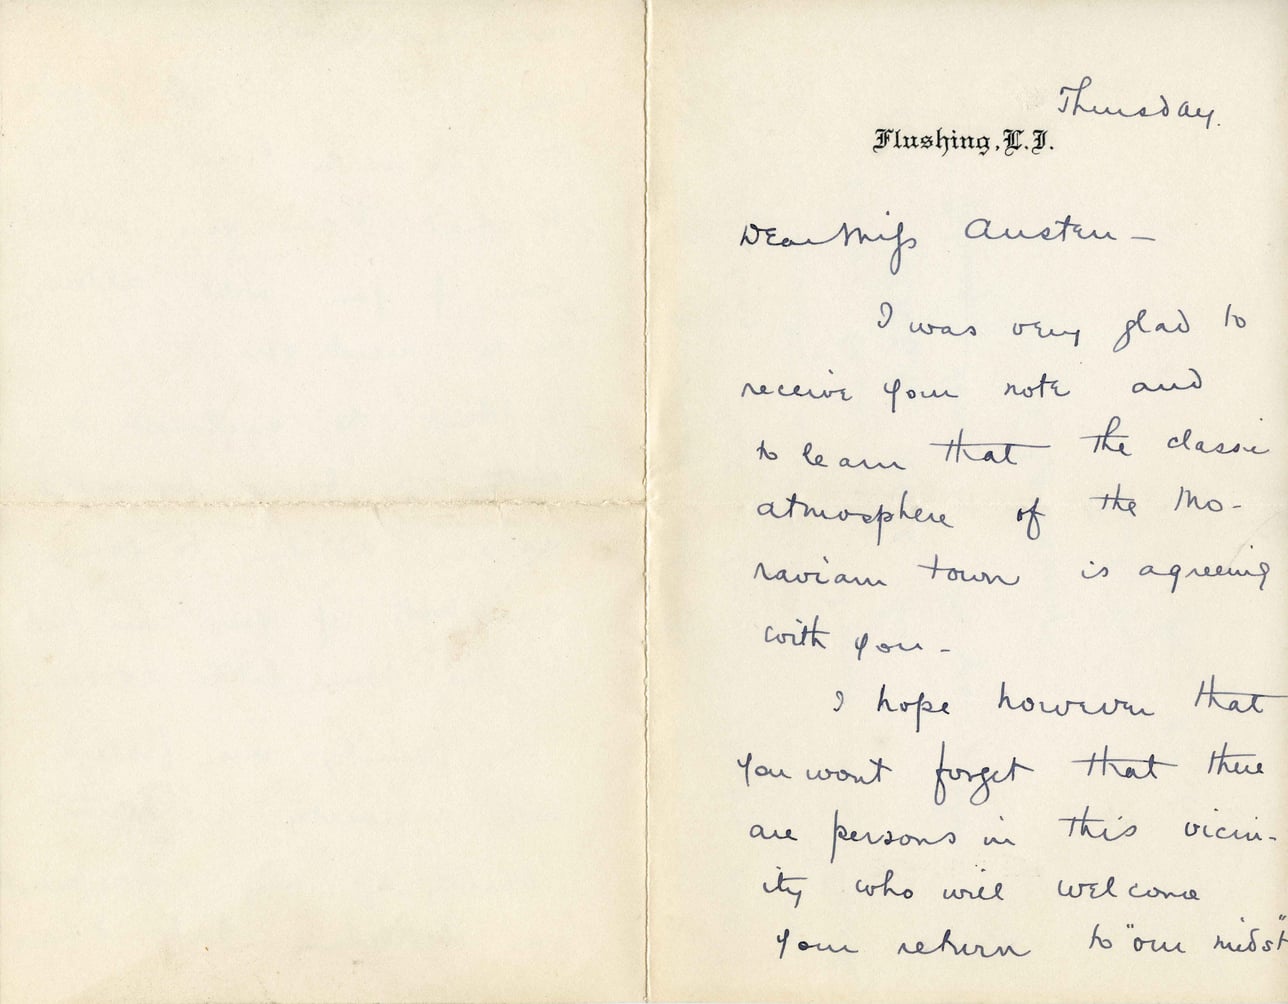 Thursday.
Flushing, L.I.
Dear Miss Austen —
I was very glad to
receive your note and
to learn that the classic
atmosphere of the Mo-
raviam town is agreeing
with you —
I hope however that
you wont forget that there
are persons in this vicin-
ity who will welcome
your return to "our midst"